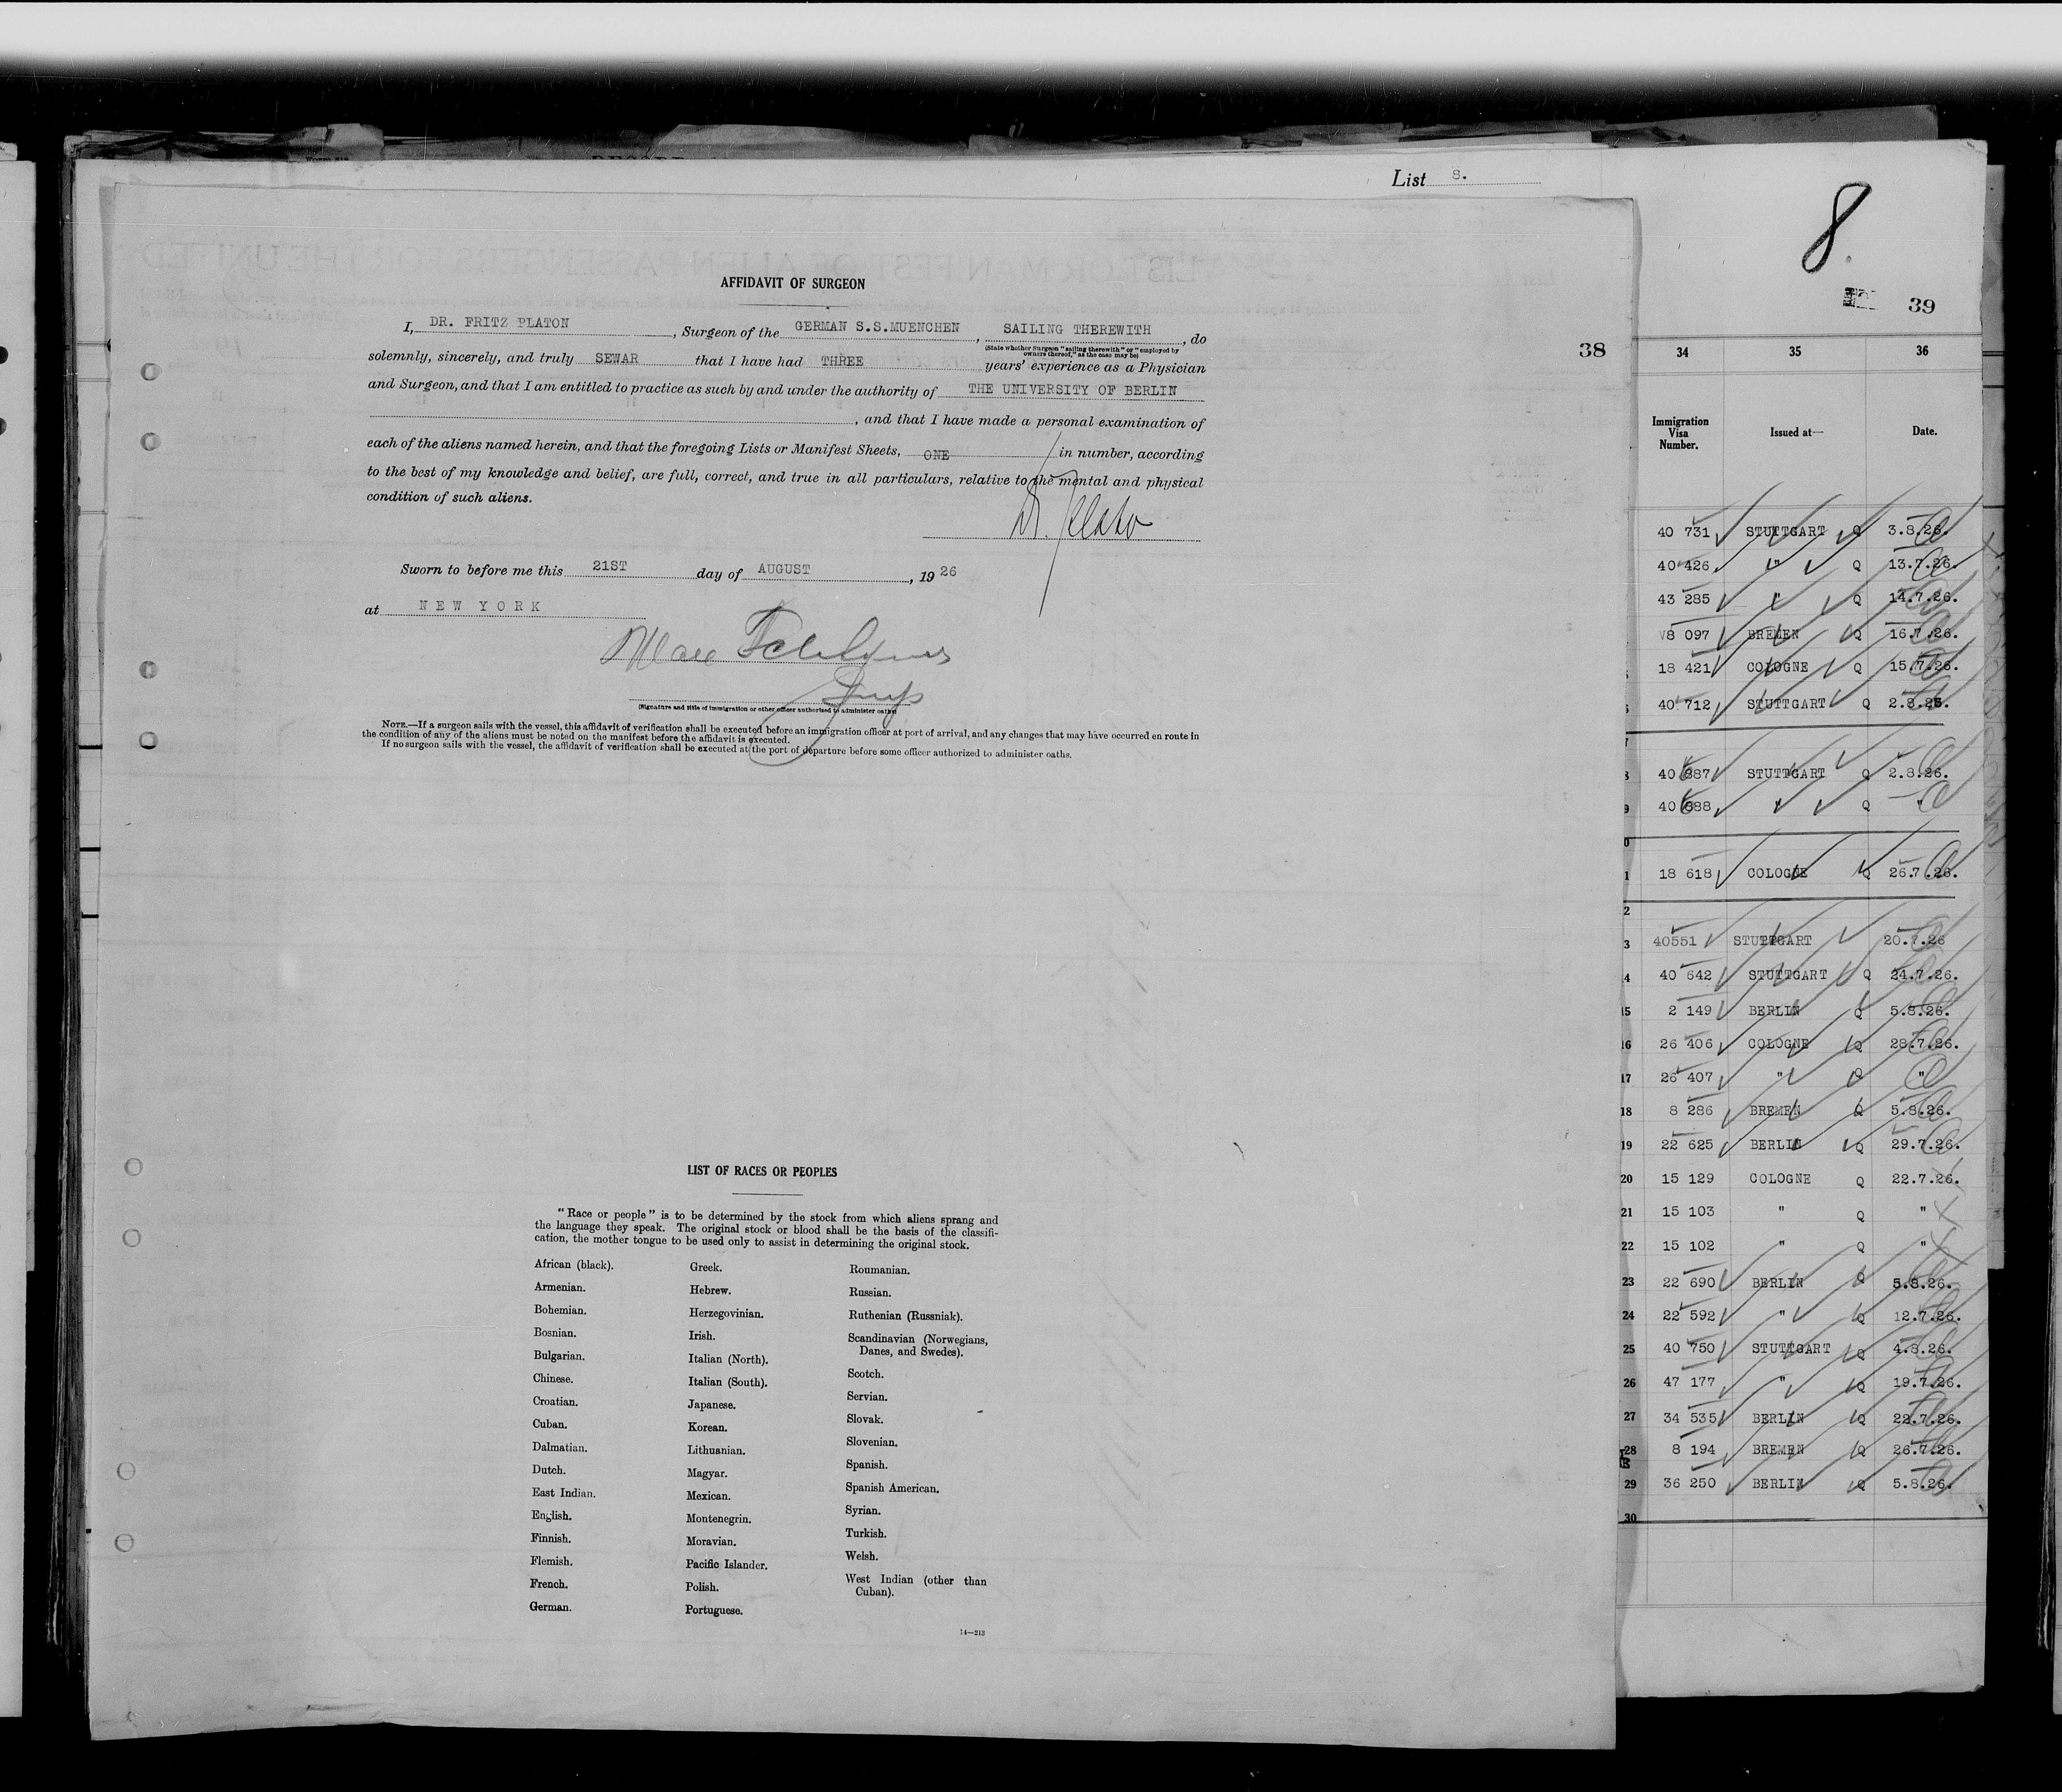 List 8.
8.
39
38
AFFIDAVIT OF SURGEON
I, DR. FRITZ PLATON, Surgeon of the GERMAN S.S.MUENCHEN, SAILING THEREWITH, do
(State whether Surgeon "sailing therewith" or "employed by
owners thereof," as the case may be)
solemnly, sincerely, and truly SEWAR that I have had THREE years' experience as a Physician
and Surgeon, and that I am entitled to practice as such by and under the authority of THE UNIVERSITY OF BERLIN
, and that I have made a personal examination of
each of the aliens named herein, and that the foregoing Lists or Manifest Sheets, ONE in number, according
to the best of my knowledge and belief, are full, correct, and true in all particulars, relative to the mental and physical
condition of such aliens.
Dr. Plato
Sworn to before me this 21ST day of AUGUST, 19 26
at NEW YORK
Insp
(Signature and title of immigration or other officer authorized to administer oaths)
NOTE.—If a surgeon sails with the vessel, this affidavit of verification shall be executed before an immigration officer at port of arrival, and any changes that may have occurred en route in
the condition of any of the aliens must be noted on the manifest before the affidavit is executed.
If no surgeon sails with the vessel, the affidavit of verification shall be executed at the port of departure before some officer authorized to administer oaths.
LIST OF RACES OR PEOPLES
"Race or people" is to be determined by the stock from which aliens sprang and
the language they speak. The original stock or blood shall be the basis of the classifi-
cation, the mother tongue to be used only to assist in determining the original stock.
African (black).
Armenian.
Bohemian.
Bosnian.
Bulgarian.
Chinese.
Croatian.
Cuban.
Dalmatian.
Dutch.
East Indian.
English.
Finnish.
Flemish.
French.
German.
Greek.
Hebrew.
Herzegovinian.
Irish.
Italian (North).
Italian (South).
Japanese.
Korean.
Lithuanian.
Magyar.
Mexican.
Montenegrin.
Moravian.
Pacific Islander.
Polish.
Portuguese.
Roumanian.
Russian.
Ruthenian (Russniak).
Scandinavian (Norwegians,
Danes, and Swedes).
Scotch.
Servian.
Slovak.
Slovenian.
Spanish.
Spanish American.
Syrian.
Turkish.
Welsh.
West Indian (other than
Cuban).
14—213
34 35 36
Immigration
Visa
Number.
Issued at—
Date.
40 731 STUTTGART Q 3.8.26.
40 426 " Q 13.7.26.
43 285 " Q 14.7.26.
8 097 BREMEN Q 16.7.26.
18 421 COLOGNE Q 15.7.26.
40 712 STUTTGART Q 2.8.26.
40 687 STUTTGART Q 2.8.26.
40 688 " Q "
18 618 COLOGNE Q 26.7.26.
40551 STUTTGART 20.7.26
40 642 STUTTGART Q 24.7.26.
15 2 149 BERLIN Q 5.8.26.
16 26 406 COLOGNE Q 28.7.26.
17 26 407 " Q "
18 8 286 BREMEN Q 5.8.26.
19 22 625 BERLIN Q 29.7.26.
20 15 129 COLOGNE Q 22.7.26.
21 15 103 " Q "
22 15 102 " Q "
23 22 690 BERLIN Q 5.8.26.
24 22 592 " Q 12.7.26.
25 40 750 STUTTGART Q 4.8.26.
26 47 177 " Q 19.7.26.
27 34 535 BERLIN Q 22.7.26.
28 8 194 BREMEN Q 26.7.26.
29 36 250 BERLIN Q 5.8.26.
30